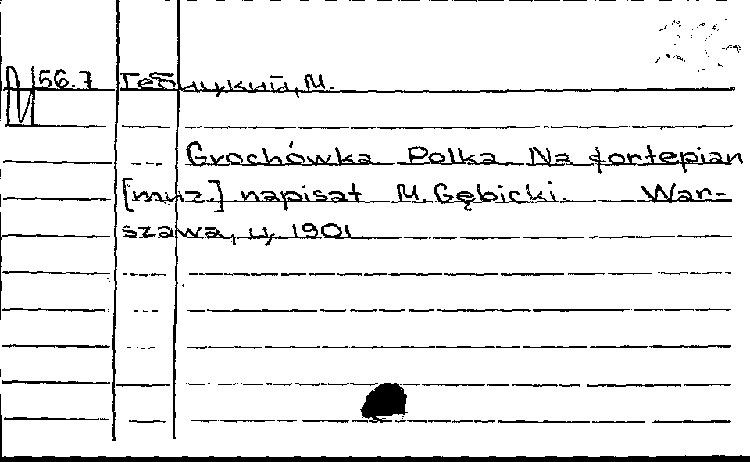 N 56.7 Гебицкий, М.
Grochówka Polka. Na fortepian
[muz.] napisał M. Gębicki. War-
szawa, ц. 1901